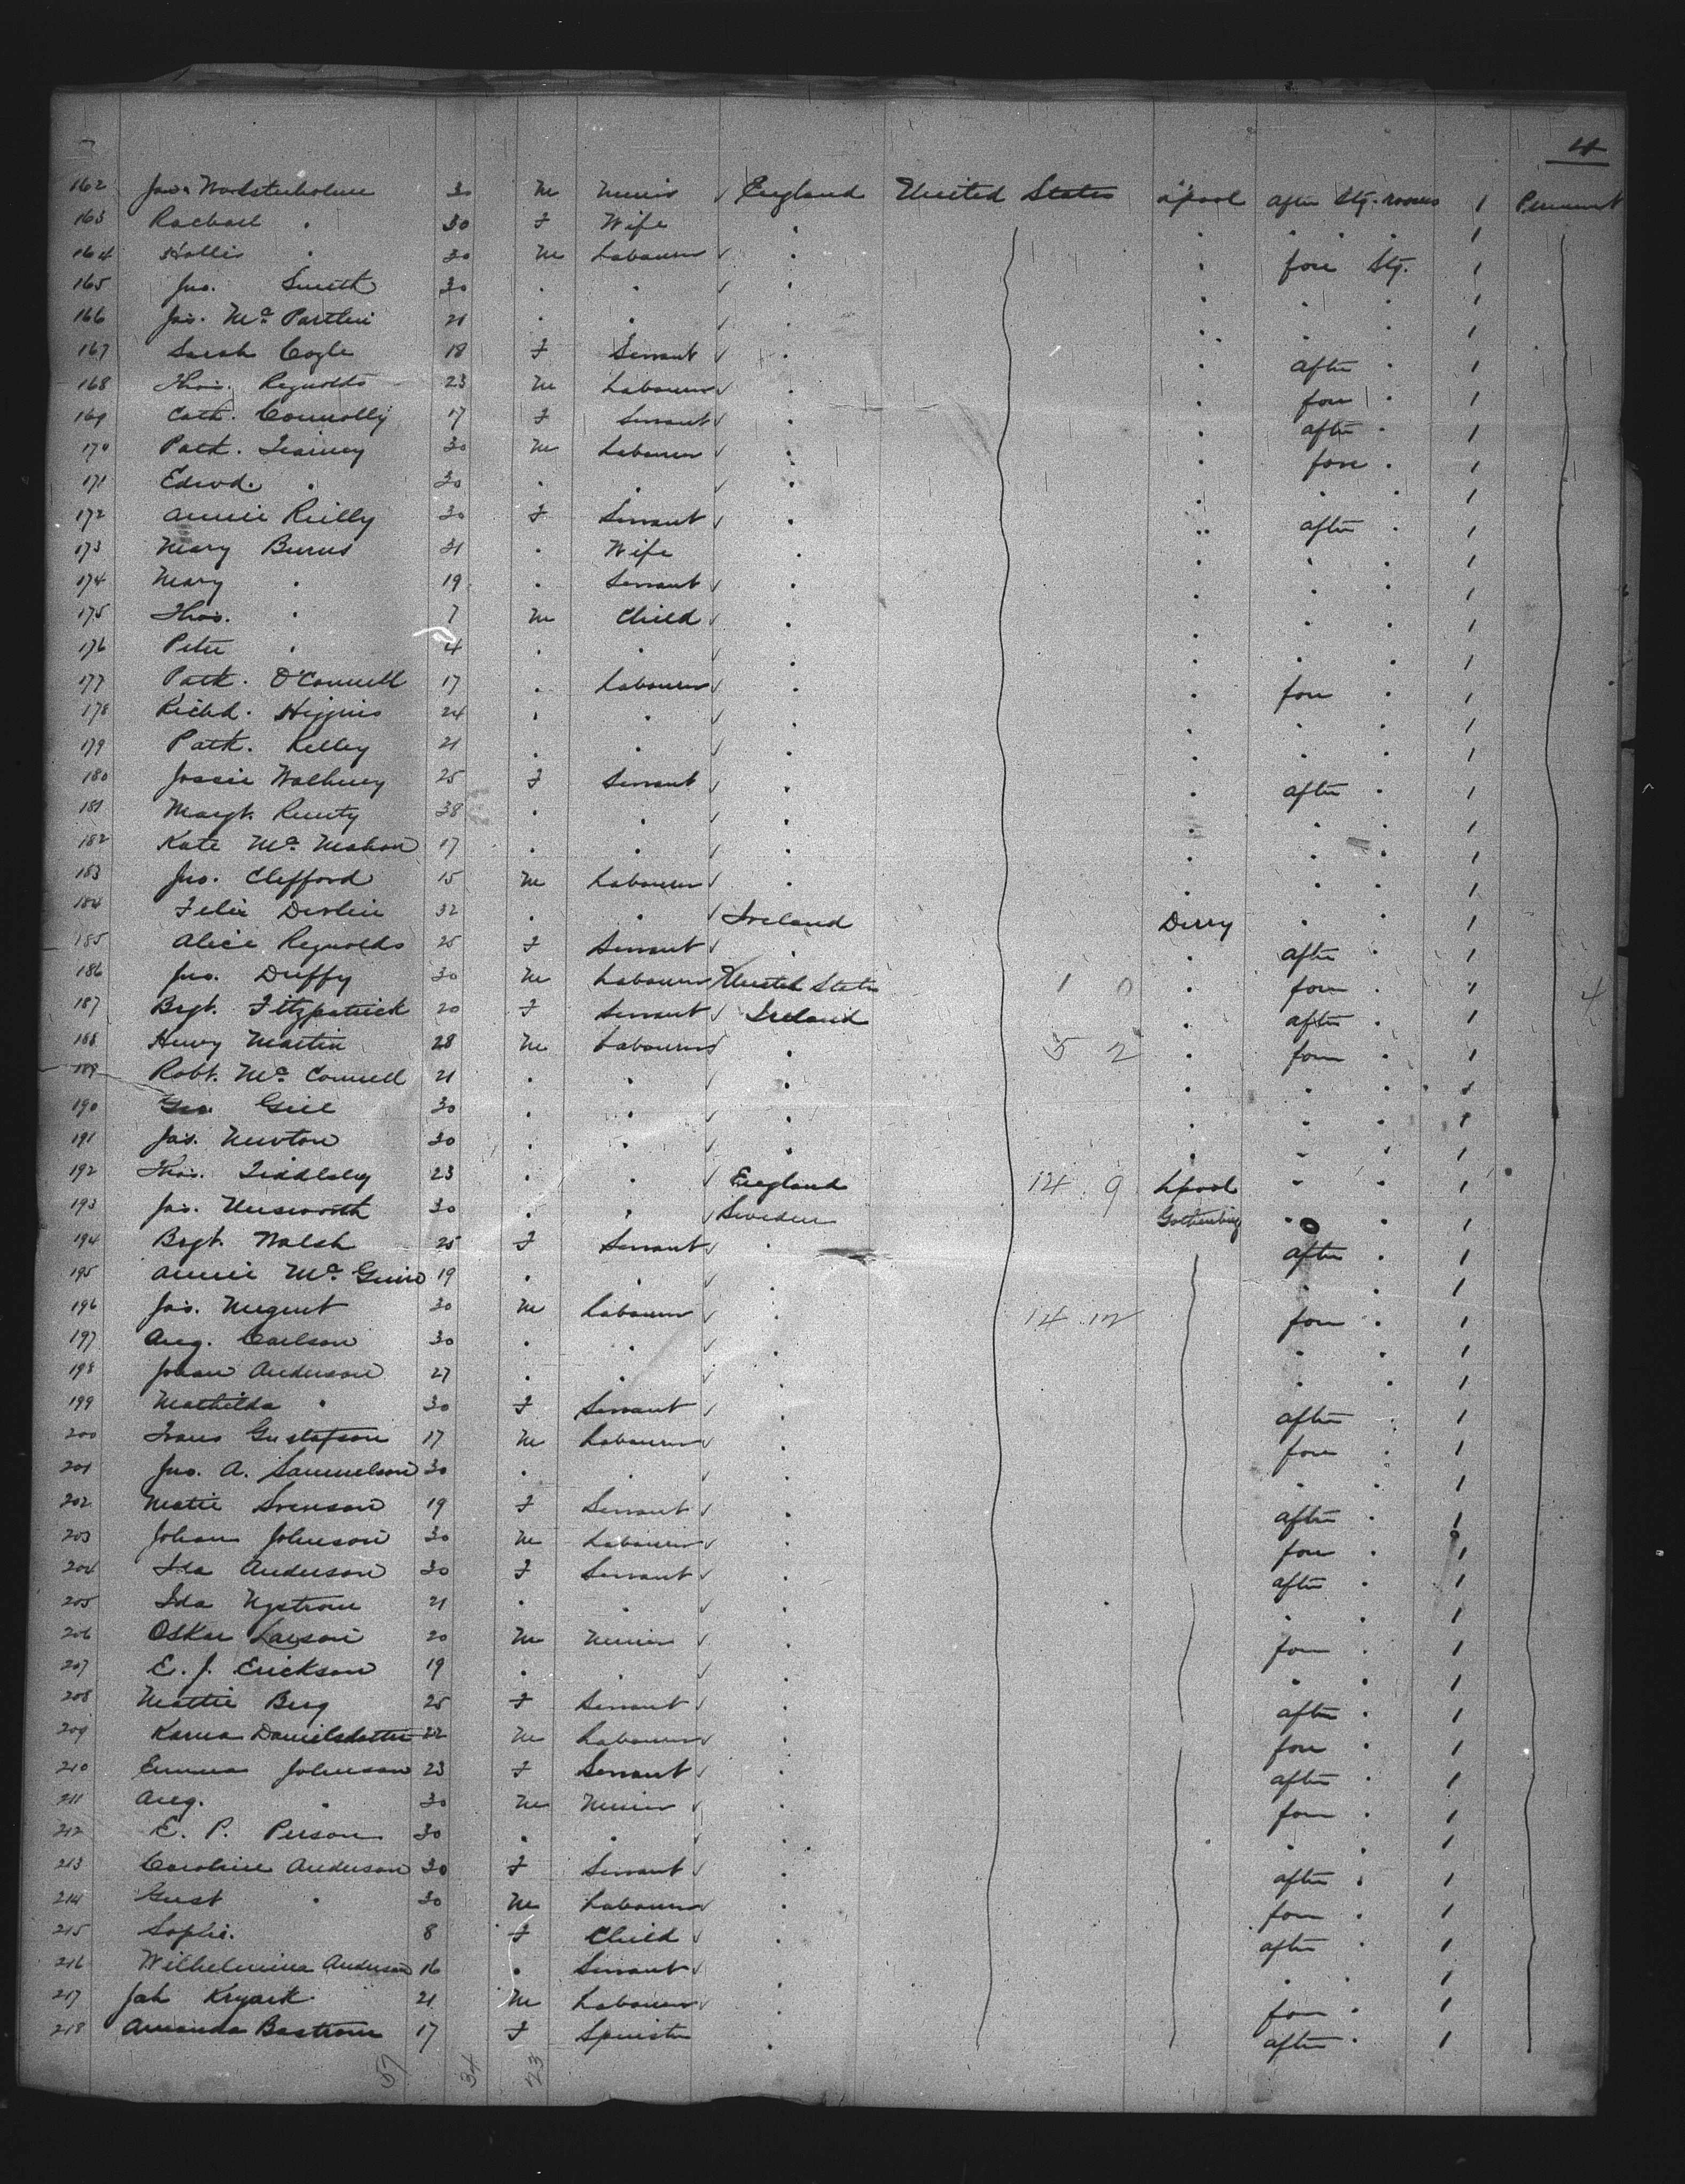 4
162 Jas. Wolstenholme 30 M Miner ✓ England United States L'pool after Stg. rooms 1 Permanent
163 Rachael . 30 F Wife . . . . . 1
164 Hollis . 30 M Labourer ✓ . . fore Stg. 1
165 Jno. Smith 30 . . ✓ . . . . 1
166 Jas. Mc Partlin 21 . . ✓ . . . . 1
167 Sarah Cogle 18 F Servant ✓ . . after . 1
168 Thos. Reynolds 23 M Labourer ✓ . . fore . 1
169 Cath. Connolly 17 F Servant ✓ . . after . 1
170 Patk. Trainey 30 M Labourer ✓ . . fore . 1
171 Edwd. . 30 . . ✓ . . . . 1
172 Annie Rielly 30 F Servant ✓ . . after . 1
173 Mary Burns 31 . Wife . . . . 1
174 Mary . 19 . Servant ✓ . . . . 1
175 Thos. . 7 M Child ✓ . . . . 1
176 Peter . 4 . . ✓ . . . . 1
177 Patk. O'Connell 17 . Labourer ✓ . . fore . 1
178 Richd. Higgins 24 . . ✓ . . . . 1
179 Patk. Kelley 21 . . ✓ . . . . 1
180 Jossie 25 F Servant ✓ . . after . 1
181 Margt. 38 . . ✓ . . . . 1
182 Kate Mc Mahon 17 . . ✓ . . . . 1
183 Jno. Clifford 15 M Labourer ✓ . . . . 1
184 Felix Devlin 32 . . ✓ Ireland Derry . . 1
185 Alice Reynolds 25 F Servant ✓ . . after . 1
186 Jno. Duffy 30 M Labourer United States 1 0 . fore . 1 4
187 Brgt. Fitzpatrick 20 F Servant ✓ Ireland . after . 1
188 Henry Martin 28 M Labourer ✓ . 5 2 . fore . 1
189 Robt. Mc Connell 21 . . ✓ . . . . 1
190 Geo Gill 30 . . ✓ . . . . 1
191 Jas. Newton 30 . . ✓ . . . . 1
192 Thos. Tiddlsley 23 . . ✓ England 14 9 Lpool . . 1
193 Jas. Unsworth 30 . . ✓ Sweden Gothenburg . . 1
194 Brgt. Walsh 25 F Servant ✓ . after . 1
195 Annie Mc 19 . . ✓ . . . 1
196 Jas. Nugent 30 M Labourer ✓ . 14 12 fore . 1
197 Aug. Carlson 30 . . ✓ . . . 1
198 Johan Anderson 27 . . ✓ . . . 1
199 Mathilda . 30 F Servant ✓ . after . 1
200 Frans Gustafson 17 M Labourer ✓ . fore . 1
201 Jno. A. Samuelson 30 . . ✓ . . . 1
202 Matie Svenson 19 F Servant ✓ . after . 1
203 Johan Johnson 30 M Labourer ✓ . fore . 1
204 Ida Anderson 30 F Servant ✓ . after . 1
205 Ida Nystrom 21 . . ✓ . . . 1
206 Oskar Larson 20 M Miner ✓ . fore . 1
207 E. J. Erickson 19 . . ✓ . . . 1
208 Mattie Berg 25 F Servant ✓ . after . 1
209 Karna Danielsdotter 22 M Labourer ✓ . fore . 1
210 Emma Johnson 23 F Servant ✓ . after . 1
211 Aug. . 30 M Miner ✓ . fore . 1
212 E. P. Person 30 . . ✓ . . . 1
213 Caroline Anderson 30 F Servant ✓ . after . 1
214 Gust . 30 M Labourer ✓ . fore . 1
215 Sophi. 8 F Child ✓ . after . 1
216 Wilhelmina Anderson 16 . Servant ✓ . . . 1
217 Jah 21 M Labourer ✓ . fore . 1
218 Amanda Bostrom 17 F Spinster . after . 1
57 34 23